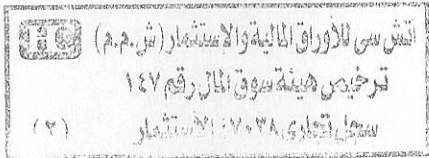 اتش سى للأوراق المالية والاستثمار (ش.م.م) HC
ترخيص هيئة سوق المال رقم ١٤٧
سجل تجارى ٧٠٣٨ الاستثمار (٢)